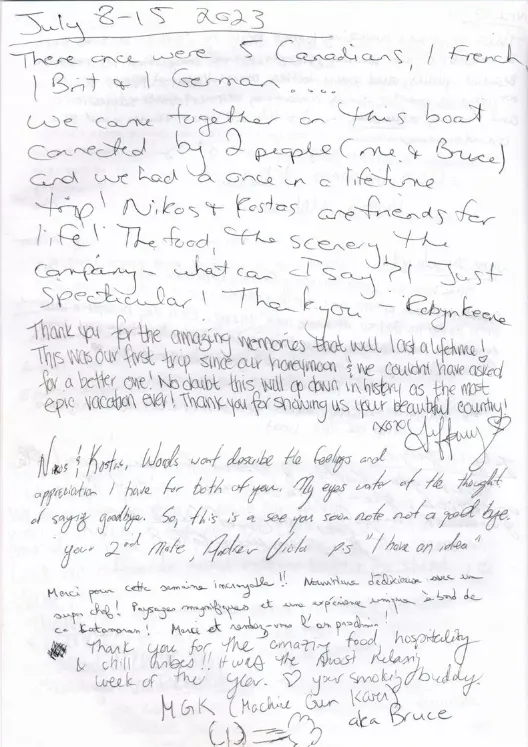 July 8-15 2023
There once were 5 Canadians, 1 French,
1 Brit & 1 German.....
We came together on this boat
connected by 2 people (me & Bruce)
and we had a once in a lifetime
trip! Nikos & Kostas are friends for
life! The food, the scenery, the
company - what can I say?! Just
Spectacular! Thank you - Robyn Keene
Thank you for the amazing memories that will last a lifetime!
This was our first trip since our honeymoon & we couldn't have asked
for a better one! No doubt this will go down in history as the most
epic vacation ever! Thank you for showing us your beautiful country!
xoxo Tiffany
Nikos & Kostas, Words wont describe the feelings and
appreciation I have for both of you. My eyes water at the thought
of saying goodbye. So, this is a see you soon note not a good bye.
your 2nd Mate, Andrew Viola ps "I have an idea"
Merci pour cette semaine incroyable!! Nourriture délicieuse avec un
super chef! Paysages magnifiques et une expérience unique à bord de
ce Katamaran! Merci et rendez-vous l'an prochain!
Thank you for the amazing food, hospitality
& chill vibes!! It was the most relaxing
week of the year. ♡ your smoking buddy.
MGK (Machine Gun Karen)
aka Bruce